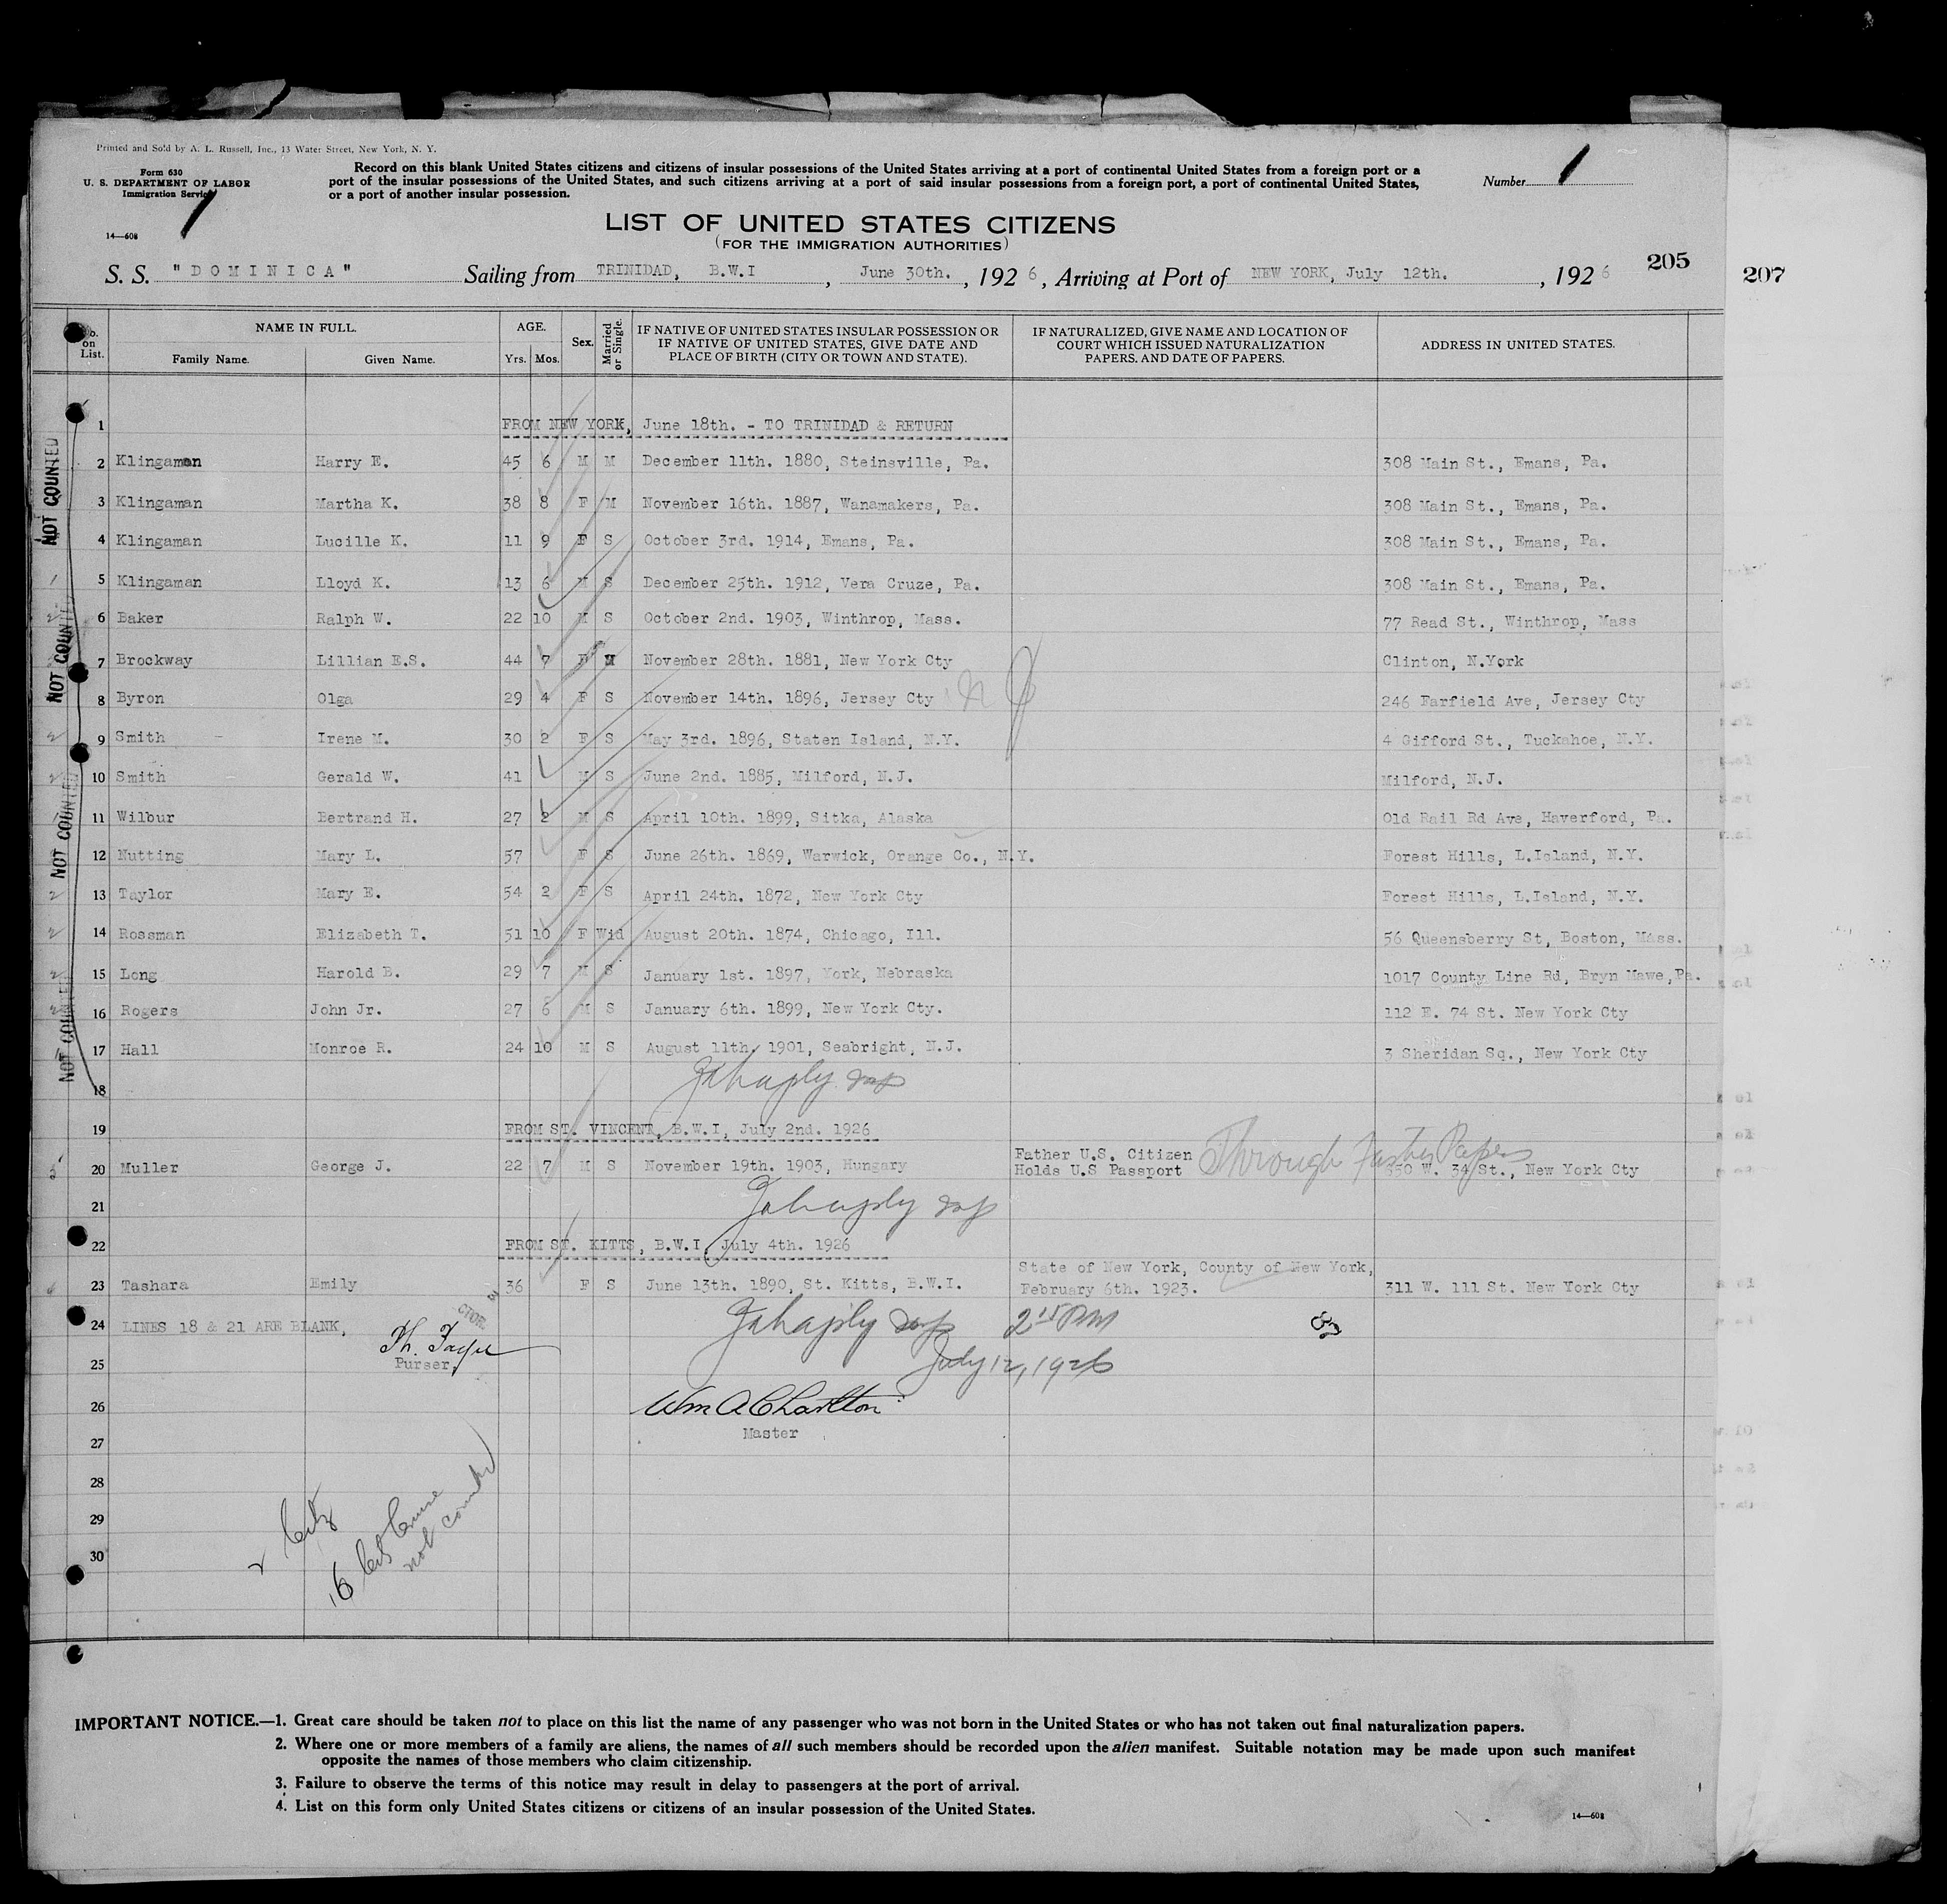 Printed and Sold by A. L. Russell, Inc., 13 Water Street, New York, N. Y.
Form 630
U. S. DEPARTMENT OF LABOR
Immigration Service
14—608
1
Record on this blank United States citizens and citizens of insular possessions of the United States arriving at a port of continental United States from a foreign port or a
port of the insular possessions of the United States, and such citizens arriving at a port of said insular possessions from a foreign port, a port of continental United States,
or a port of another insular possession.
Number 1
LIST OF UNITED STATES CITIZENS
(FOR THE IMMIGRATION AUTHORITIES)
205
207
S. S. "DOMINICA" Sailing from TRINIDAD, B.W.I , June 30th. , 1926, Arriving at Port of NEW YORK, July 12th. , 1926
No. on List. NAME IN FULL. Family Name. Given Name. AGE. Yrs. Mos. Sex. Married or Single. IF NATIVE OF UNITED STATES INSULAR POSSESSION OR IF NATIVE OF UNITED STATES, GIVE DATE AND PLACE OF BIRTH (CITY OR TOWN AND STATE). IF NATURALIZED, GIVE NAME AND LOCATION OF COURT WHICH ISSUED NATURALIZATION PAPERS. AND DATE OF PAPERS. ADDRESS IN UNITED STATES.
1 FROM NEW YORK, June 18th. - TO TRINIDAD & RETURN
2 Klingaman Harry E. 45 6 M M December 11th. 1880, Steinsville, Pa. 308 Main St., Emans, Pa.
3 Klingaman Martha K. 38 8 F M November 16th. 1887, Wanamakers, Pa. 308 Main St., Emans, Pa.
4 Klingaman Lucille K. 11 9 F S October 3rd. 1914, Emans, Pa. 308 Main St., Emans, Pa.
5 Klingaman Lloyd K. 13 6 M S December 25th. 1912, Vera Cruze, Pa. 308 Main St., Emans, Pa.
6 Baker Ralph W. 22 10 M S October 2nd. 1903, Winthrop, Mass. 77 Read St., Winthrop, Mass
7 Brockway Lillian E.S. 44 7 F M November 28th. 1881, New York Cty Clinton, N.York
8 Byron Olga 29 4 F S November 14th. 1896, Jersey Cty N J 246 Farfield Ave, Jersey Cty
9 Smith Irene M. 30 2 F S May 3rd. 1896, Staten Island, N.Y. 4 Gifford St., Tuckahoe, N.Y.
10 Smith Gerald W. 41 M S June 2nd. 1885, Milford, N.J. Milford, N.J.
11 Wilbur Bertrand H. 27 2 M S April 10th. 1899, Sitka, Alaska Old Rail Rd Ave, Haverford, Pa.
12 Nutting Mary L. 57 F S June 26th. 1869, Warwick, Orange Co., N.Y. Forest Hills, L.Island, N.Y.
13 Taylor Mary E. 54 2 F S April 24th. 1872, New York Cty Forest Hills, L.Island, N.Y.
14 Rossman Elizabeth T. 51 10 F Wid August 20th. 1874, Chicago, Ill. 56 Queensberry St, Boston, Mass.
15 Long Harold B. 29 7 M S January 1st. 1897, York, Nebraska 1017 County Line Rd, Bryn Mawe,Pa.
16 Rogers John Jr. 27 6 M S January 6th. 1899, New York Cty. 112 E. 74 St. New York Cty
17 Hall Monroe R. 24 10 M S August 11th. 1901, Seabright, N.J. 3 Sheridan Sq., New York Cty
18
19 FROM ST. VINCENT, B.W.I, July 2nd. 1926
20 Muller George J. 22 7 M S November 19th. 1903, Hungary Father U.S. Citizen Holds U.S Passport Through Papers 350 W. 34 St., New York Cty
21
22 FROM ST. KITTS, B.W.I, July 4th. 1926
23 Tashara Emily 36 F S June 13th. 1890, St. Kitts, B.W.I. State of New York, County of New York, February 6th. 1923. 311 W. 111 St. New York Cty
24 LINES 18 & 21 ARE BLANK,
Purser,
25 July 12, 1926
26 Wm A Charlton
27 Master
28
29
30
NOT COUNTED
NOT COUNTED
NOT COUNTED
NOT COUNTED
not counted
IMPORTANT NOTICE.—1. Great care should be taken not to place on this list the name of any passenger who was not born in the United States or who has not taken out final naturalization papers.
2. Where one or more members of a family are aliens, the names of all such members should be recorded upon the alien manifest. Suitable notation may be made upon such manifest
opposite the names of those members who claim citizenship.
3. Failure to observe the terms of this notice may result in delay to passengers at the port of arrival.
4. List on this form only United States citizens or citizens of an insular possession of the United States.
14—608